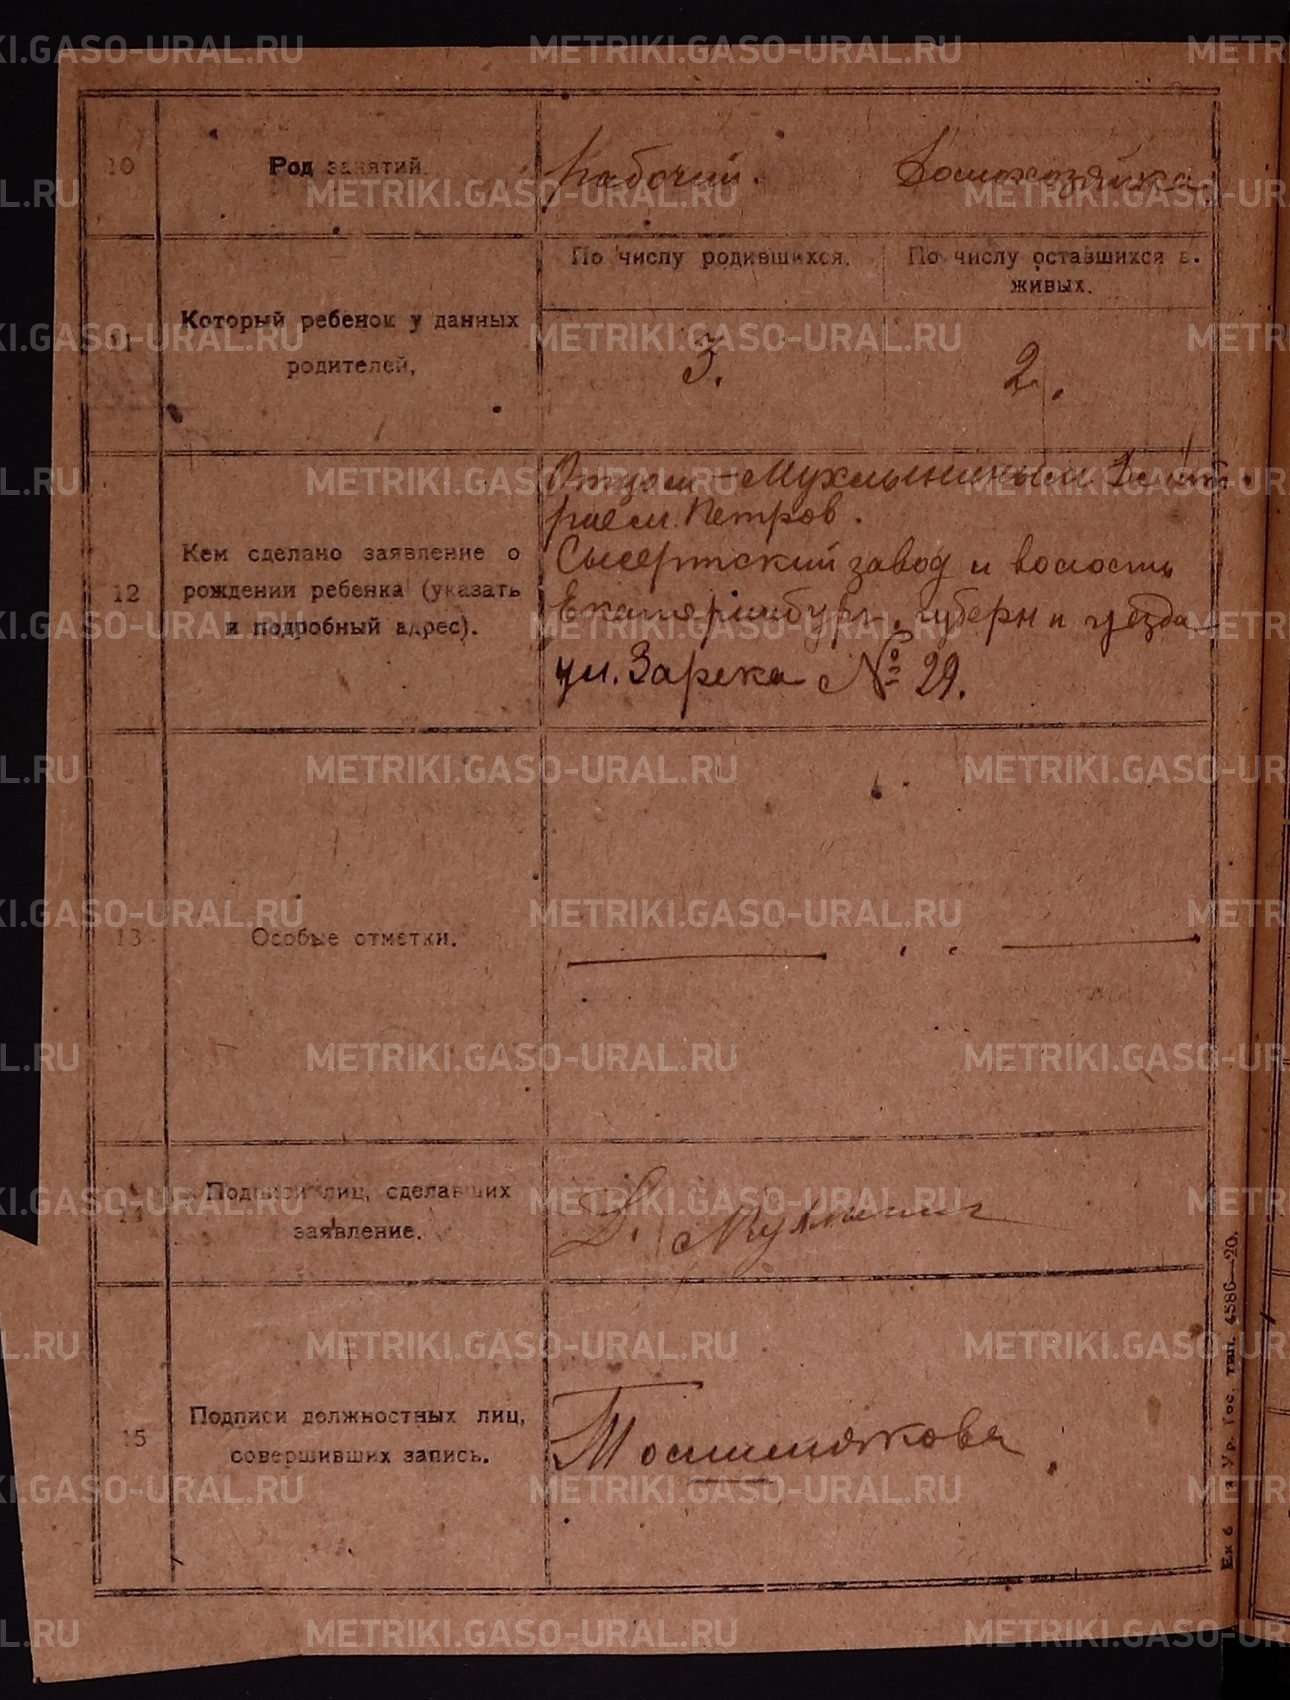 10 Род занятий. Рабочий. Домохозяйка
По числу родившихся. По числу оставшихся в живых.
11 Который ребенок у данных родителей, 3. 2.
12 Кем сделано заявление о рождении ребенка (указать и подробный адрес).
Отцом - Мухлыниным Дмит-
рием Петров.
Сысертский завод и волость
Екатеринбург. губерн и уезда
ул. Зарека № 29.
13 Особые отметки.
14 Подписи лиц, сделавших
заявление.
Д. Мухлынин
15 Подписи должностных лиц,
совершивших запись.
Ур. Гос. тип. 4586—20.
METRIKI.GASO-URAL.RU